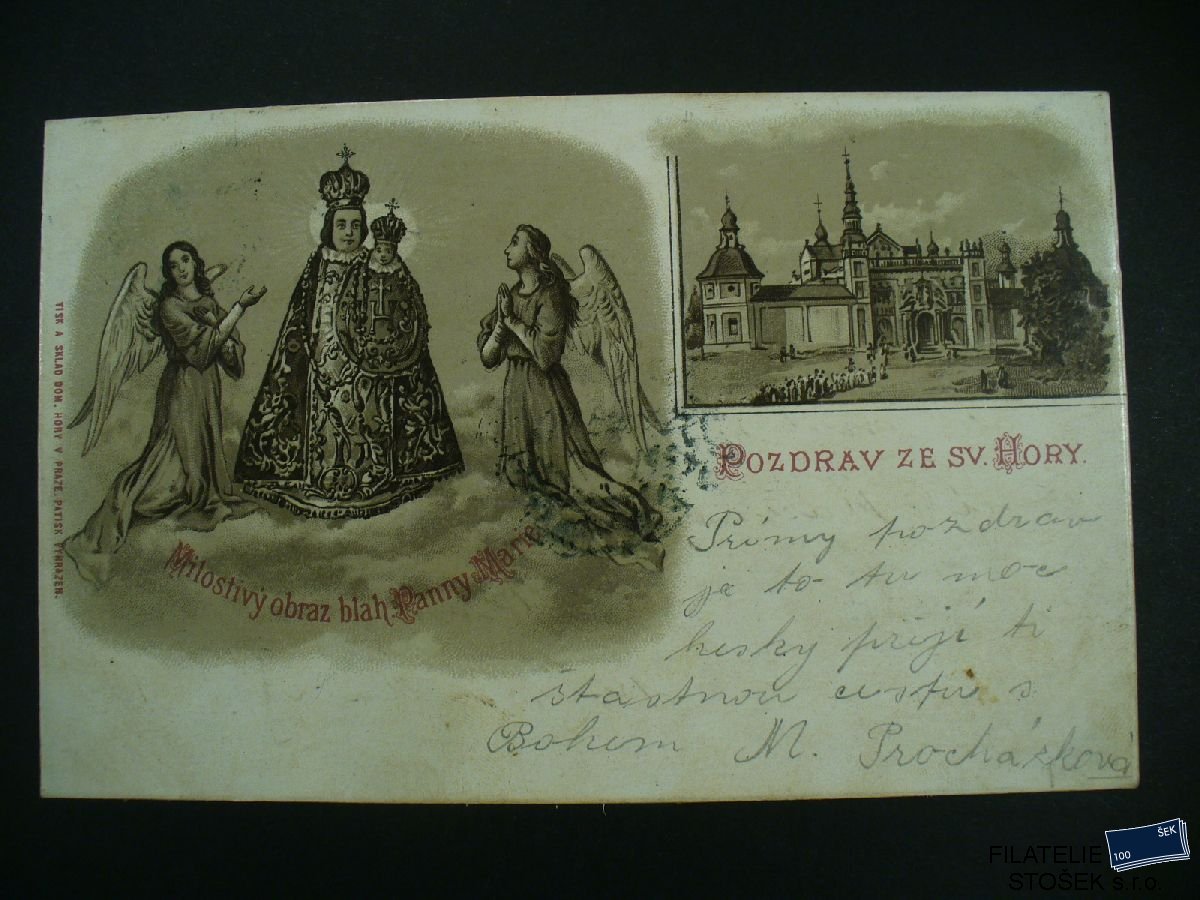 TISK A SKLAD DOM. HORY V PRAZE. PATISK VYHRAZEN.
Milostivý obraz blah. Panny Marie
POZDRAV ZE SV. HORY.
Přímy pozdrav
je to tu moc
hesky přejí ti
štastnou cestu s
Bohem M. Procházková
ŠEK
100
FILATELIE
STOŠEK s.r.o.